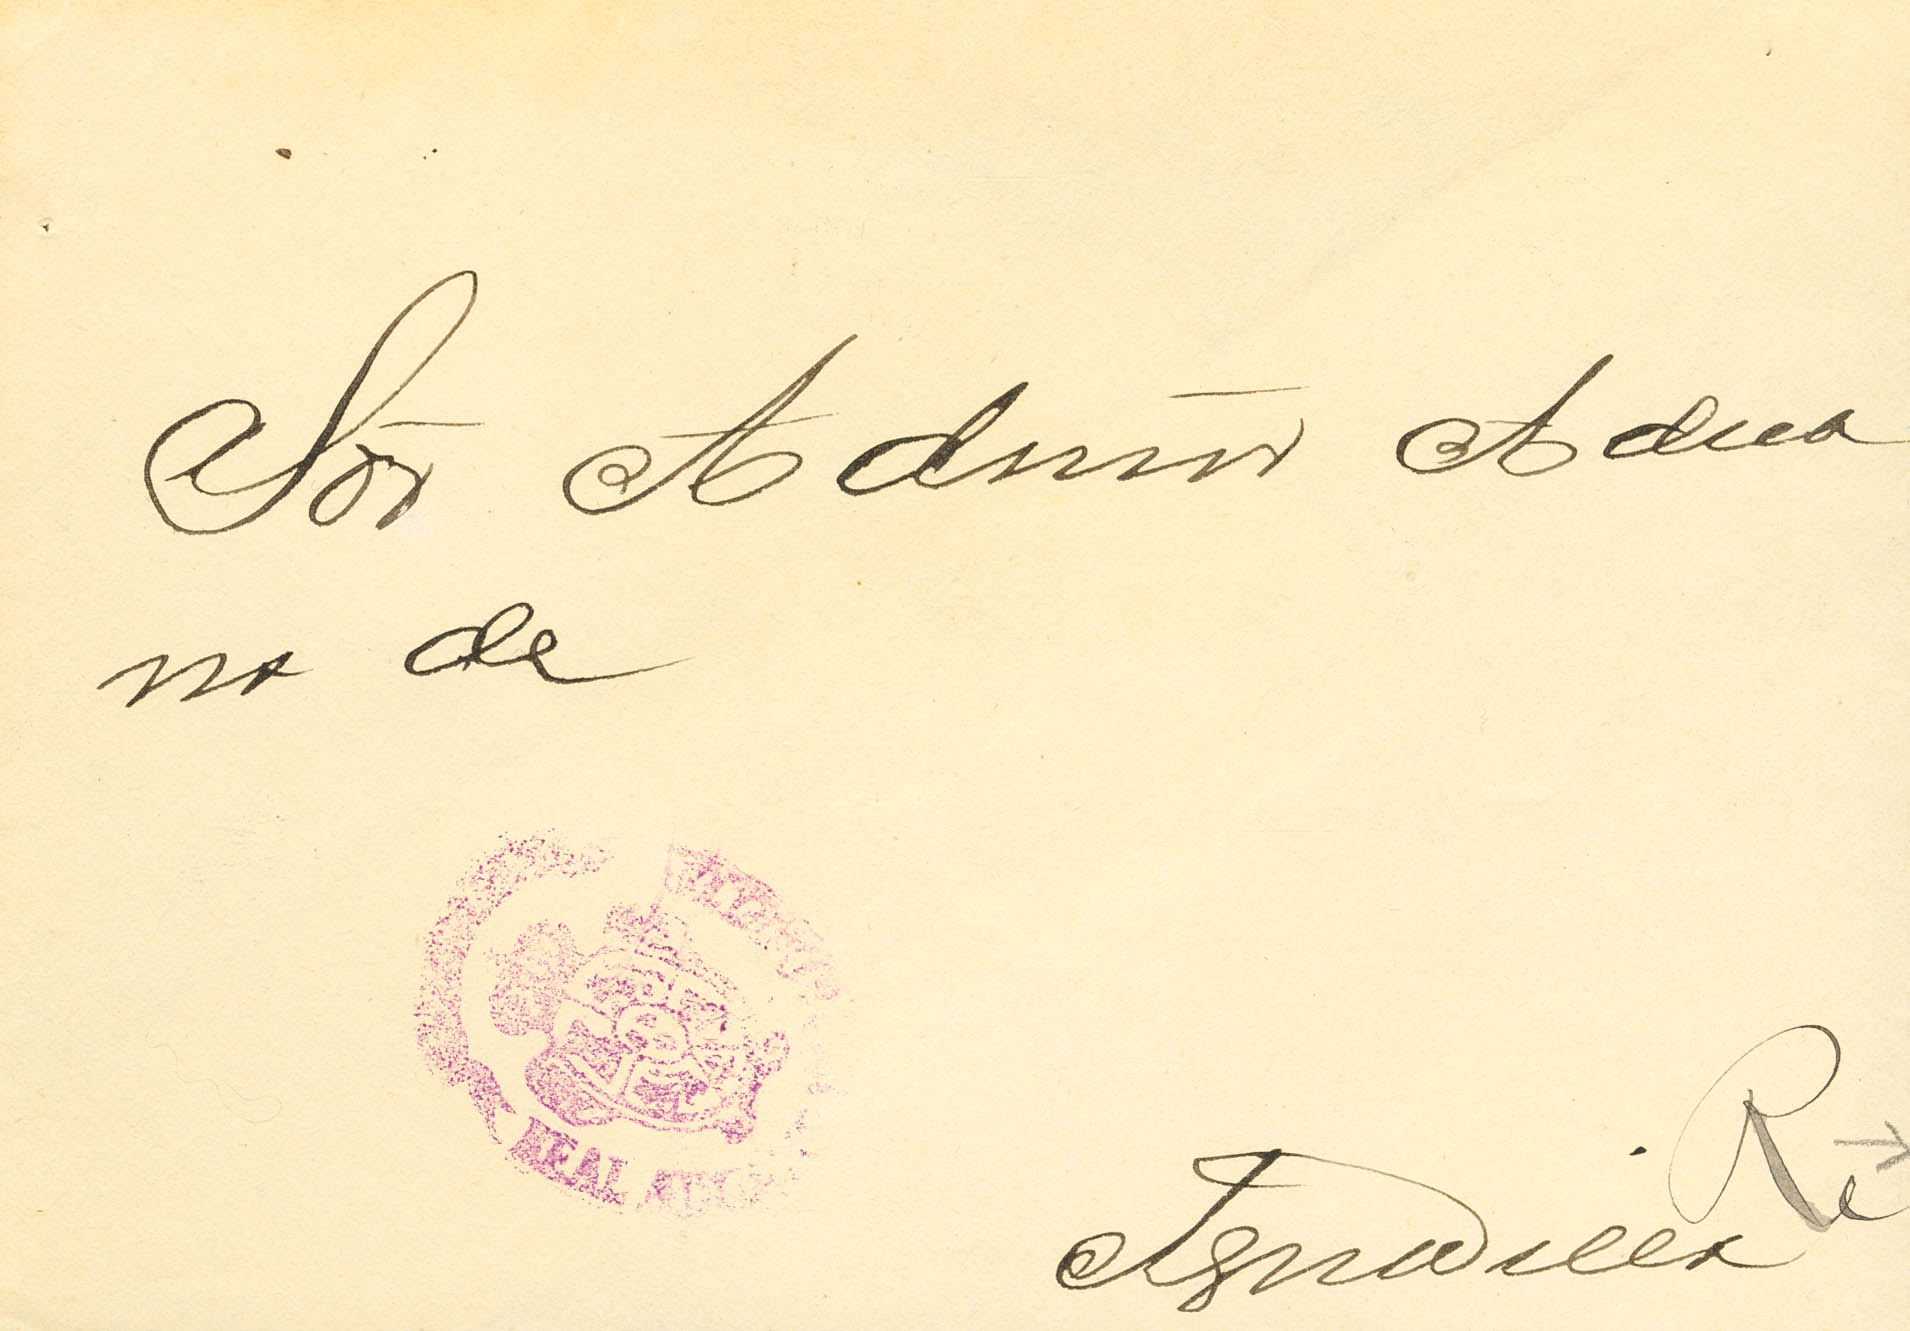 Sor Admor Adua
na de
REAL
Aguadilla
R